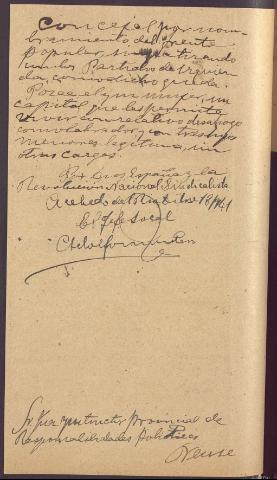 Concejal por nom-
bramiento del frente
popular, simpatizando
con los Partidos de izquier-
da, como dicho queda.
Posee el y su mujer, un
capital que les permite
vivir con relativo desahogo
como labrador, y con tres hijos
menores legitimos, sin
otras cargas.
Por Dios España y la
Revolución Nacional Sindicalista
Acebedo de 18/941
El Jefe Local
Sr Juez Instructor Provincial de
Responsabilidades Politicas
Orense